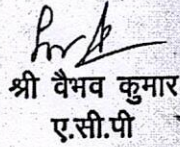 श्री वैभव कुमार
ए.सी.पी